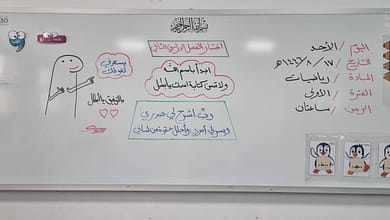 بسم الله الرحمن الرحيم
اختبار الفصل الدراسي الثاني
اليوم / الأحد
التاريخ / ١٧ / ٨ / ١٤٤٦ هـ
المادة / رياضيات
الفترة / الأولى
الزمن / ساعتان
ابدأ باسم الله
ولا تنس كتابة اسمك يا بطل
رب اشرح لي صدري
ويسر لي أمري واحلل عقدة من لساني
بالتوفيق يا بطل